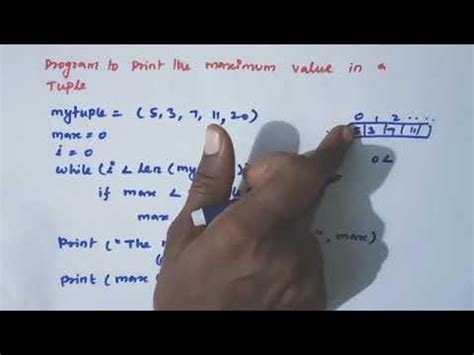 Program to Print the maximum value in a
Tuple
mytuple = (5, 3, 7, 11, 20)
max = 0
i = 0
while (i < len (my
if max <
max
Print ("The
", max)
Print (max
0 1 2 ....
3 7 11
0 <